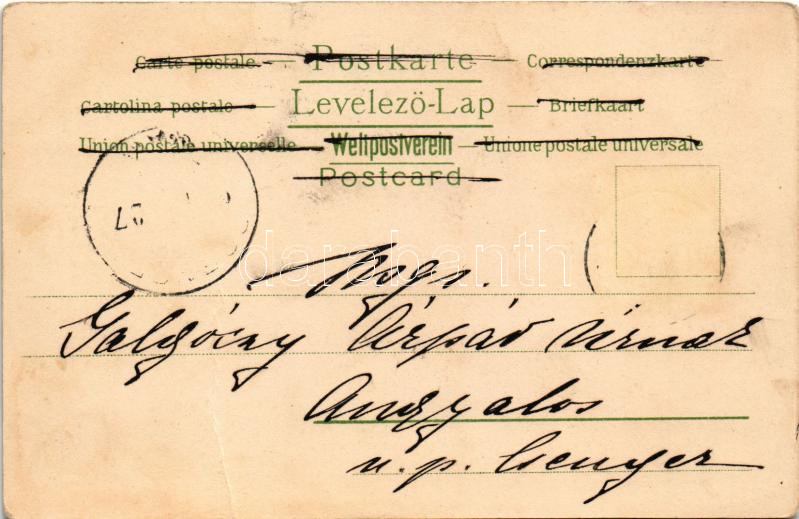 Carte postale — Postkarte — Correspondenzkarte
Cartolina postale — Levelező-Lap — Briefkaart
Union postale universelle — Weltpostverein — Unione postale universale
Postcard
darabanth
Nags.
Galgóczy Árpád Úrnak
Angyalos
u. p. Csenger